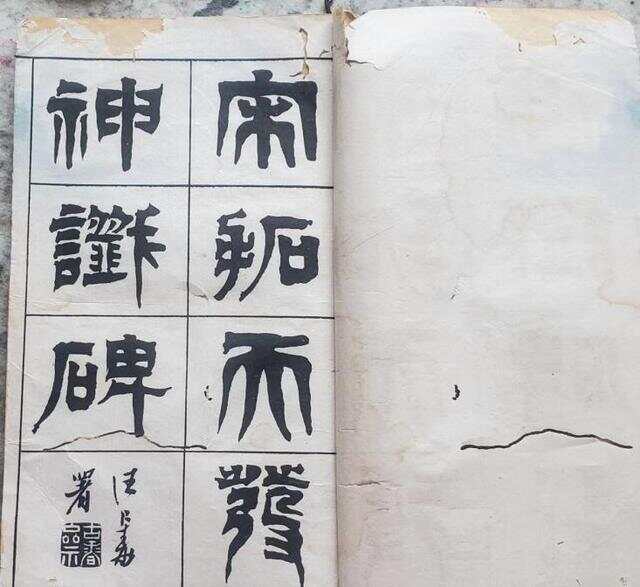 宋拓天發
神讖碑
署